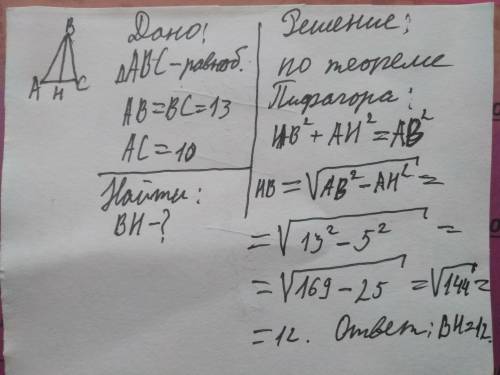 B
A H C
Дано:
△ABC-равноб.
AB=BC=13
AC=10
Найти:
BH-?
Решение:
по теореме
Пифагора:
HB²+AH²=AB²
HB=√AB²-AH²=
=√13²-5² =
=√169-25 =√144=
=12. Ответ: BH=12.